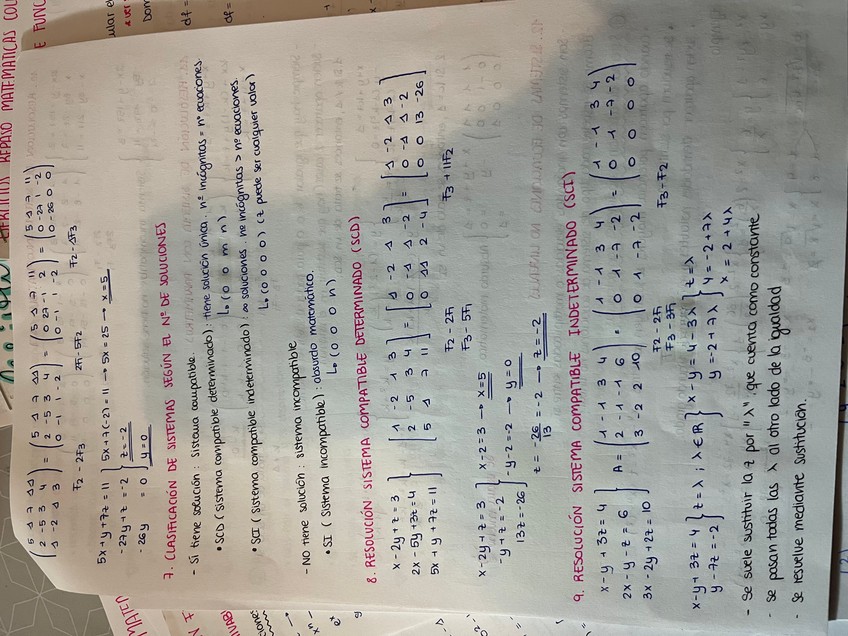 (5 1 7 11 / 2 -5 3 4 / 1 -2 1 3) = (5 1 7 11 / 2 -5 3 4 / 0 -1 1 -2) = (5 1 7 11 / 0 27 -1 2 / 0 -1 1 -2) = (5 1 7 11 / 0 -27 1 -2 / 0 -26 0 0)
F2 - 2F3
2F1 - 5F2
F2 - 1F3
5x + y + 7z = 11 } 5x + 7(-2) = 11 → 5x = 25 → x = 5
-27y + z = -2 } z = -2
-26y = 0 y = 0
7. CLASIFICACIÓN DE SISTEMAS SEGÚN EL Nº DE SOLUCIONES
- Si tiene solución: Sistema compatible.
• SCD (Sistema compatible determinado): tiene solución única. nº incógnitas = nº ecuaciones.
↳ (0 0 m n)
• SCI (Sistema compatible indeterminado): ∞ soluciones. nº incógnitas > nº ecuaciones.
↳ (0 0 0 0) (z puede ser cualquier valor)
- NO tiene solución: sistema incompatible
• SI (Sistema incompatible): absurdo matemático.
↳ (0 0 0 n)
8. RESOLUCIÓN SISTEMA COMPATIBLE DETERMINADO (SCD)
x - 2y + z = 3
2x - 5y + 3z = 4
5x + y + 7z = 11 } [1 -2 1 3 / 2 -5 3 4 / 5 1 7 11] = [1 -2 1 3 / 0 -1 1 -2 / 0 11 2 -4] = [1 -2 1 3 / 0 -1 1 -2 / 0 0 13 -26]
F2 - 2F1
F3 - 5F1
F3 + 11F2
x - 2y + z = 3 } x - 2 = 3 → x = 5
-y + z = -2 } -y - 2 = -2 → y = 0
13z = 26 } z = -26/13 = -2 → z = -2
9. RESOLUCIÓN SISTEMA COMPATIBLE INDETERMINADO (SCI)
x - y + 3z = 4
2x - y - z = 6
3x - 2y + 2z = 10 } A = (1 -1 3 4 / 2 -1 -1 6 / 3 -2 2 10) = (1 -1 3 4 / 0 1 -7 -2 / 0 1 -7 -2) = (1 -1 3 4 / 0 1 -7 -2 / 0 0 0 0)
F2 - 2F1
F3 - 3F1
F3 - F2
x - y + 3z = 4 } z = λ ; λ ∈ ℝ } x - y = 4 - 3λ } z = λ
y - 7z = -2 } y = -2 + 7λ } y = -2 + 7λ
x = 2 + 4λ
- Se suele sustituir la z por "λ" que cuenta como constante
- se pasan todas las λ al otro lado de la igualdad
- se resuelve mediante sustitución.